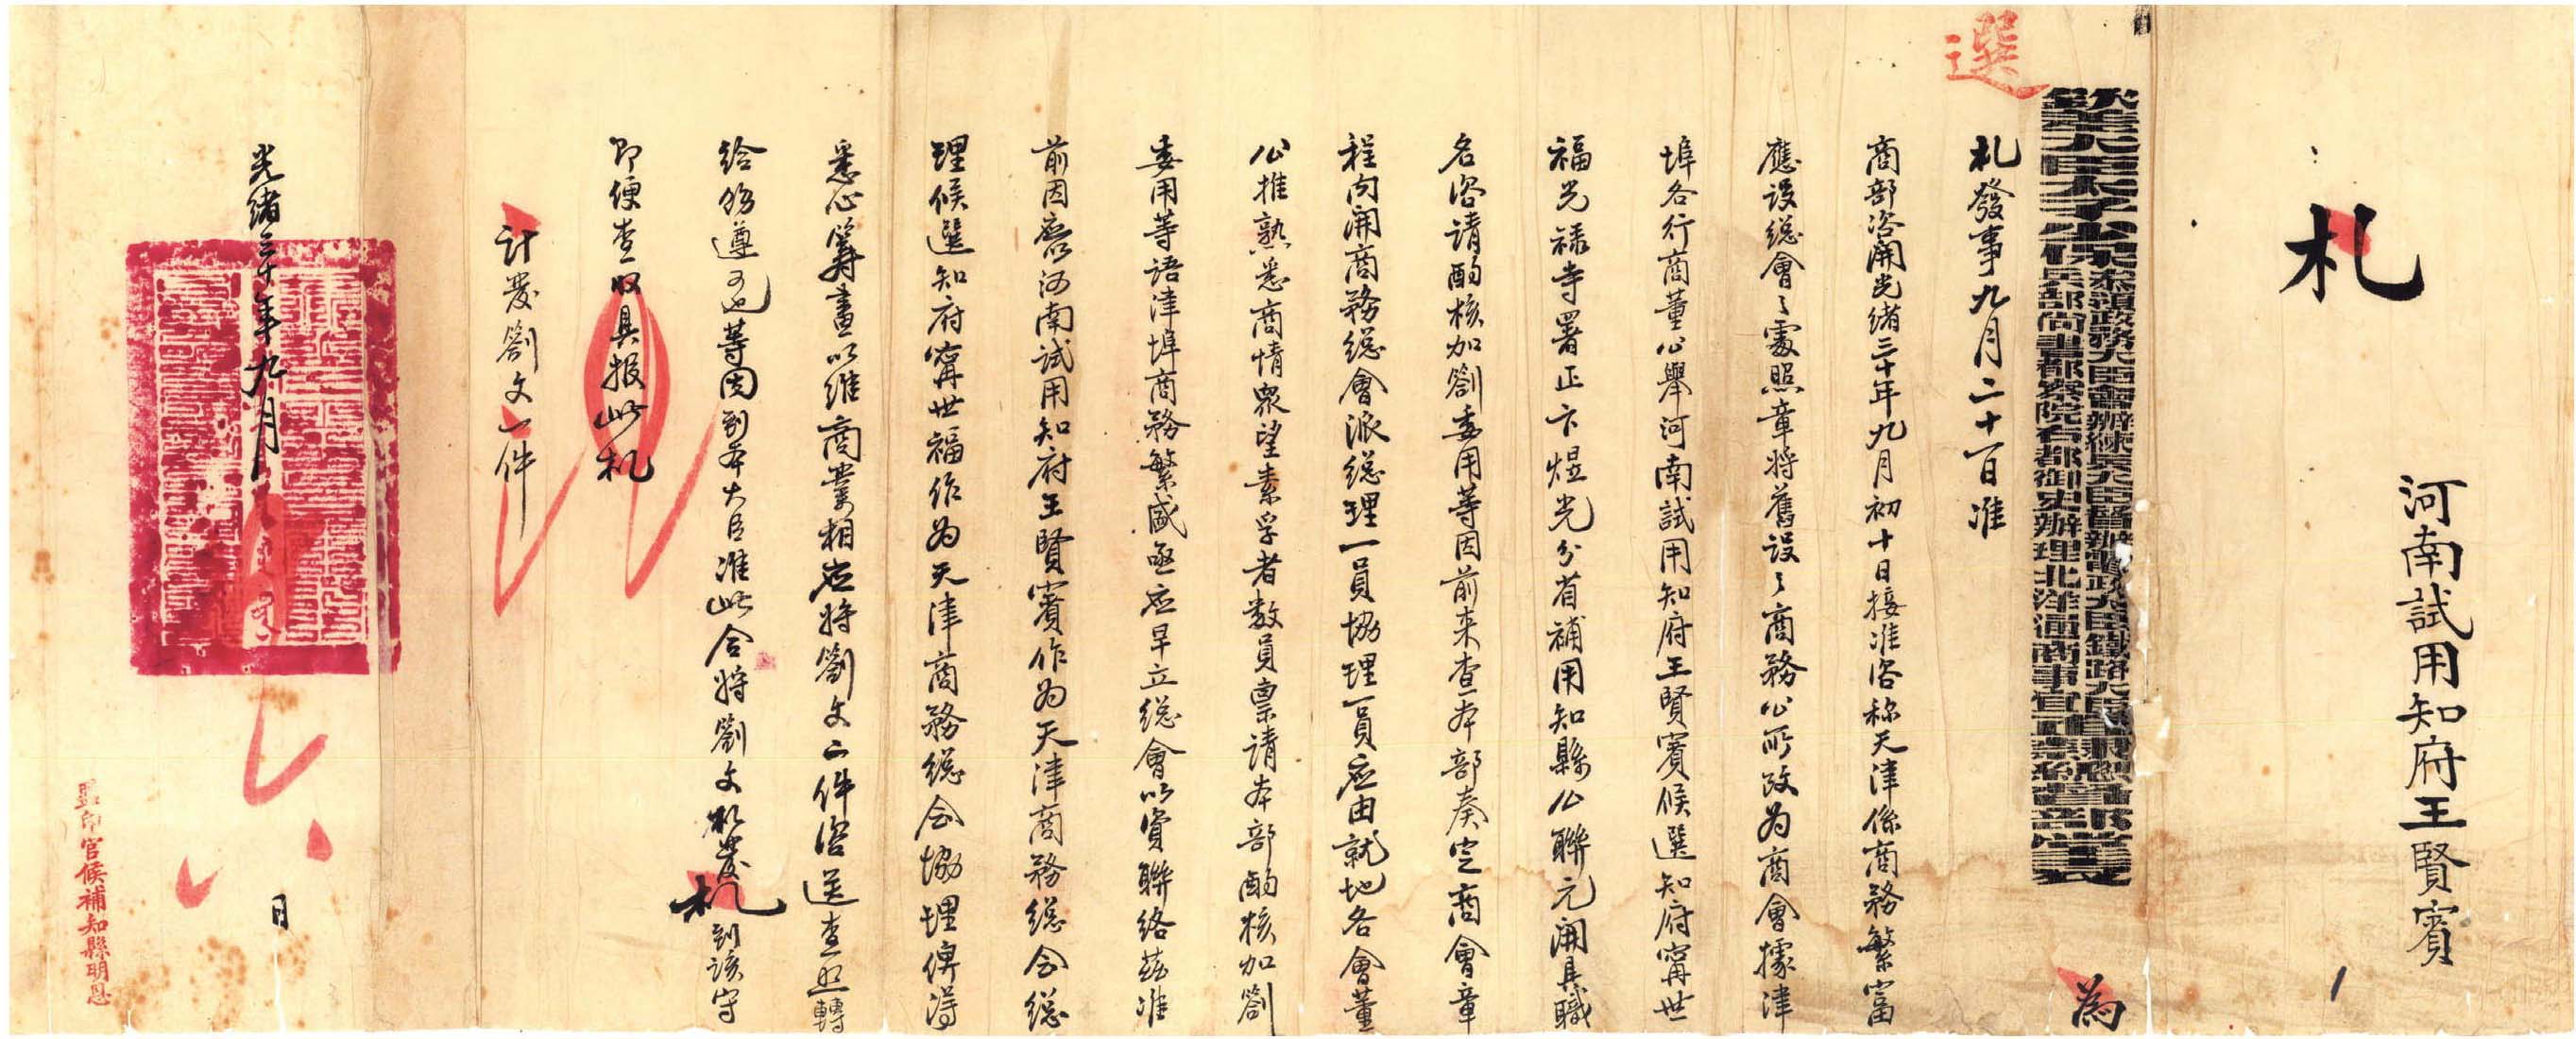 札
河南試用知府王賢賓
欽差大臣太子少保參預政務大臣會辦練兵大臣督辦電政大臣鐵路大臣兵部尚書都察院右都御史辦理北洋通商事宜直隸總督部堂袁
為
選
札發事九月二十一日准
商部咨開光緒三十年九月初十日接准咨稱天津係商務繁富
應設總會之處照章將舊設之商務公所改為商會據津
埠各行商董公舉河南試用知府王賢賓候選知府甯世
福光祿寺署正卞煜光分省補用知縣公聯元開具職
名咨請酌核加劄委用等因前來查本部奏定商會章
程內開商務總會派總理一員協理一員應由就地各會董
公推熟悉商情眾望素孚者數員稟請本部酌核加劄
委用等語津埠商務繁盛亟应早立總會以資聯絡茲准
前因應以河南試用知府王賢賓作為天津商務總会總
理候選知府甯世福作為天津商務總会協理俾得
悉心籌畫以維商業相应將劄文二件咨送查照轉
給飭遵可也等因到本大臣准此合將劄文札發札到該守
即便查收具报此札
計發劄文一件
光緒三十年九月
日
監印官候補知縣明恩